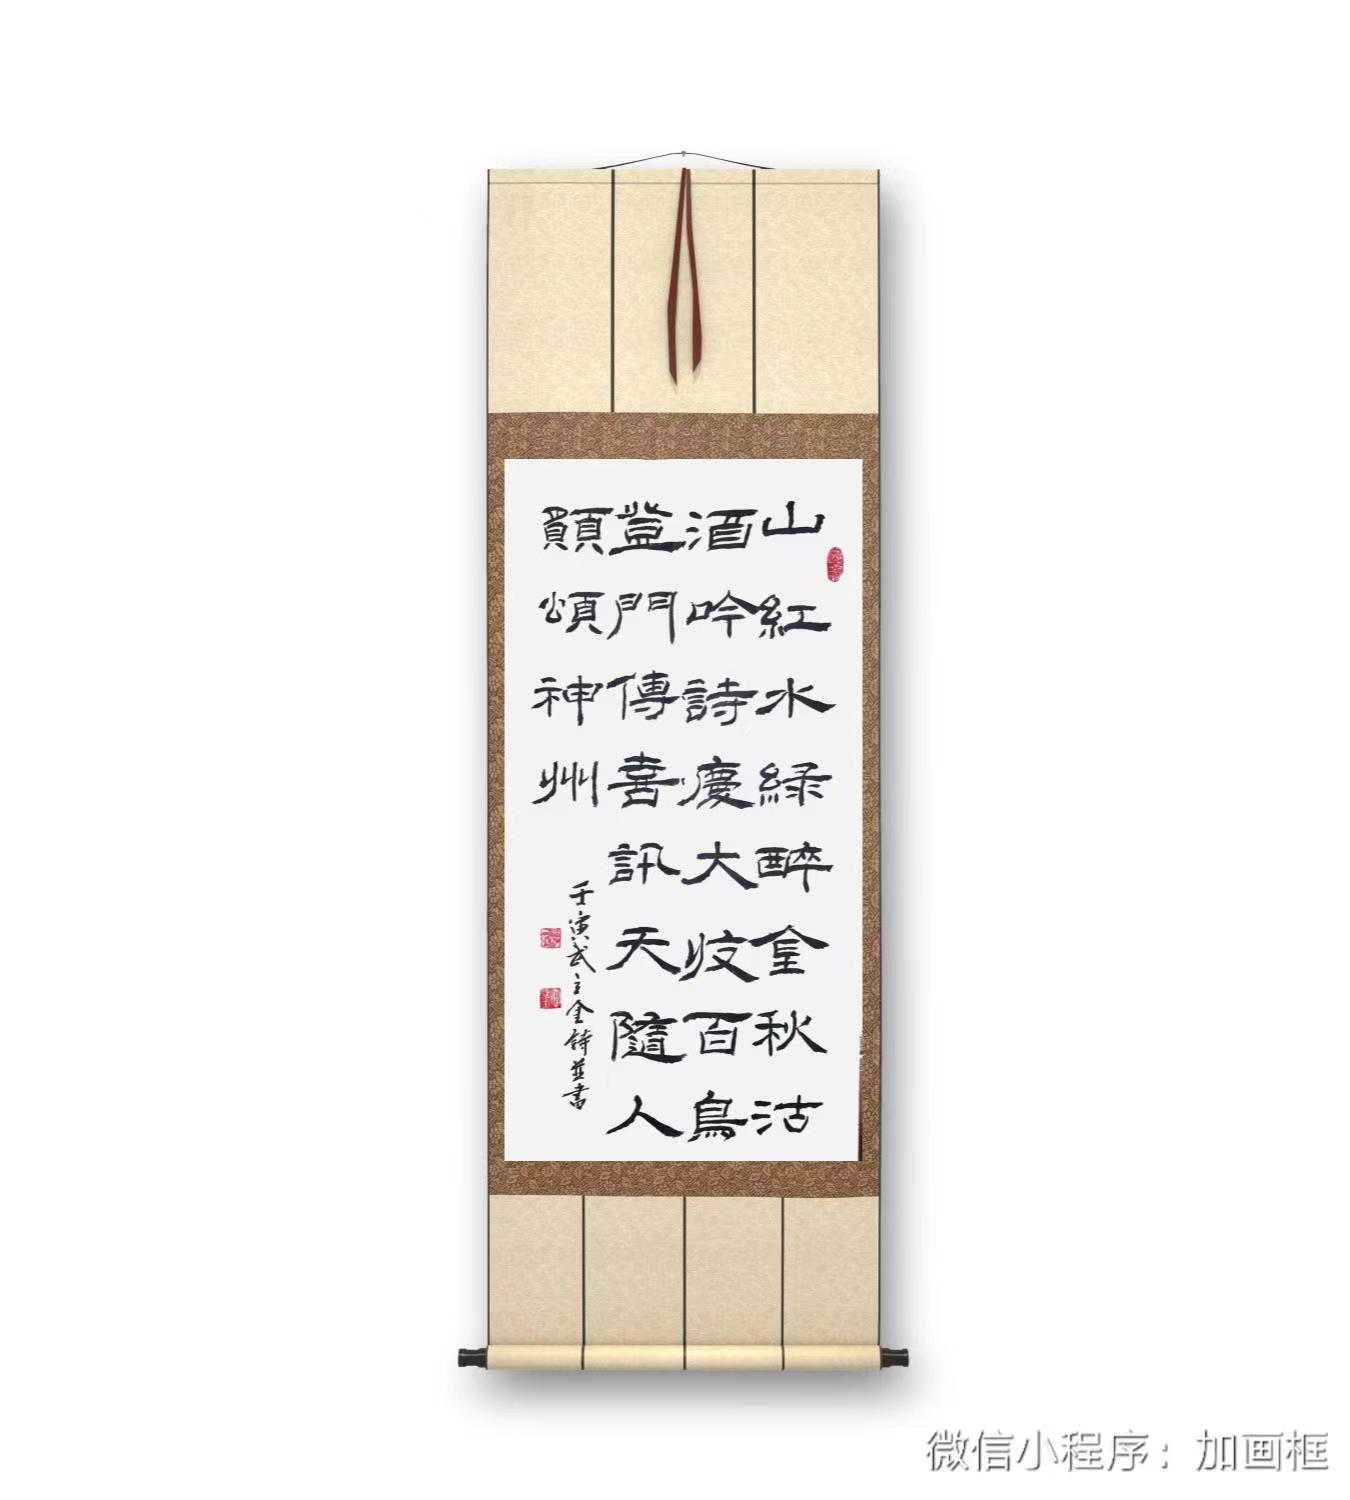 山紅水緑醉金秋沽
酒吟詩慶大收百鳥
登門傳喜訊天隨人
願頌神州
壬寅武主金鑄並書
微信小程序：加画框